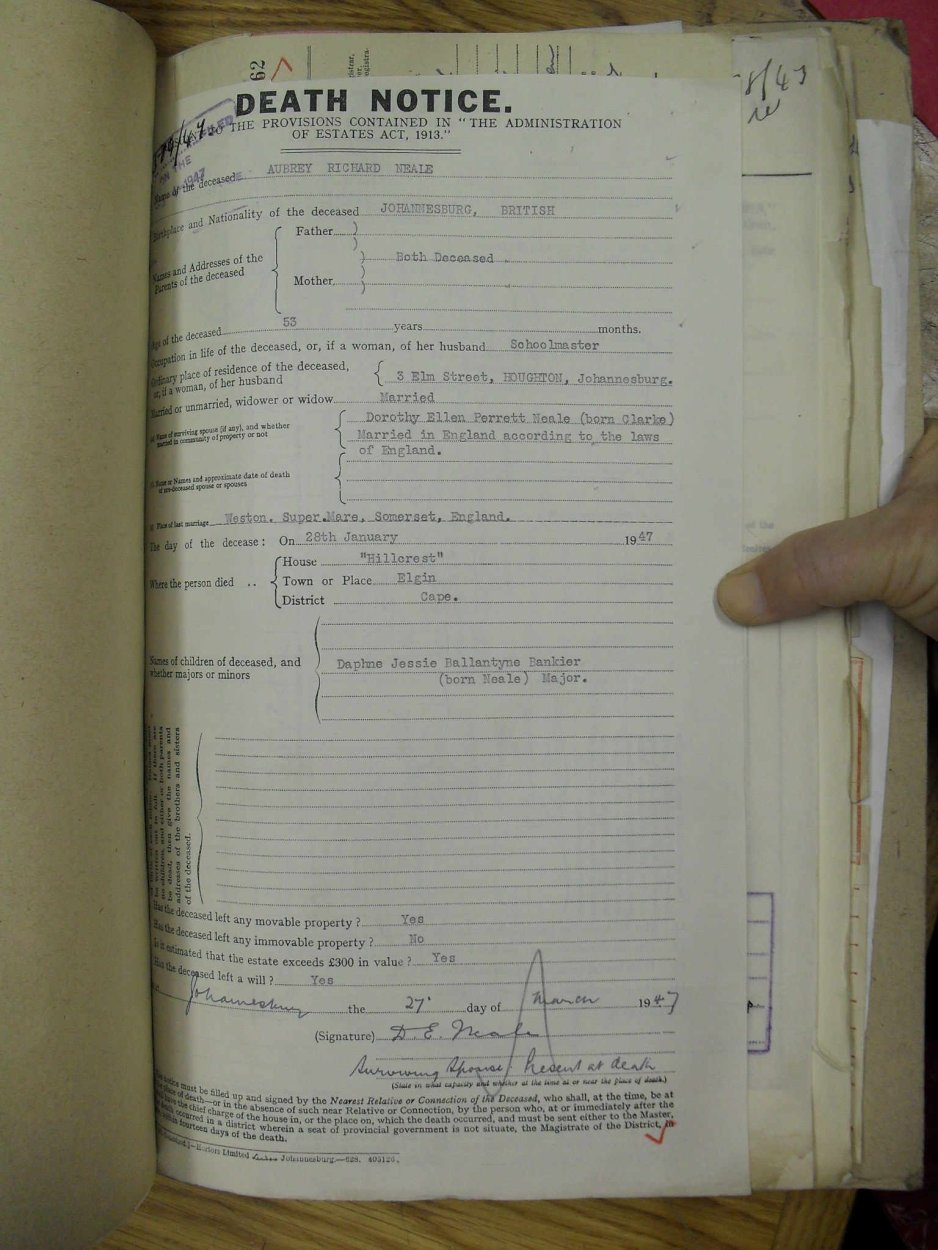 62
8/43
DEATH NOTICE.
THE PROVISIONS CONTAINED IN "THE ADMINISTRATION
OF ESTATES ACT, 1913."
1947
Name of the deceased AUBREY RICHARD NEALE
Birthplace and Nationality of the deceased JOHANNESBURG, BRITISH
Names and Addresses of the
Parents of the deceased
Father
Both Deceased
Mother
Age of the deceased 53 years months.
Occupation in life of the deceased, or, if a woman, of her husband Schoolmaster
Ordinary place of residence of the deceased,
or, if a woman, of her husband
3 Elm Street, HOUGHTON, Johannesburg.
Married or unmarried, widower or widow Married
Name of surviving spouse (if any), and whether
married in community of property or not
Dorothy Ellen Perrett Neale (born Clarke)
Married in England according to the laws
of England.
Name or Names and approximate date of death
of pre-deceased spouse or spouses
Place of last marriage Weston. Super.Mare, Somerset, England.
The day of the decease: On 28th January 1947
Where the person died ..
House "Hillcrest"
Town or Place Elgin
District Cape.
Names of children of deceased, and
whether majors or minors
Daphne Jessie Ballantyne Bankier
(born Neale) Major.
no children, and either or both parents
be dead, then give the names and
addresses of the brothers and sisters
of the deceased.
Has the deceased left any movable property? Yes
Has the deceased left any immovable property? No
Is it estimated that the estate exceeds £300 in value? Yes
Has the deceased left a will? Yes
Johannesburg the 27 day of March 1947
(Signature) D. E. Neale
Surviving Spouse Present at death
(State in what capacity and whether at the time at or near the place of death.)
notice must be filled up and signed by the Nearest Relative or Connection of the Deceased, who shall, at the time, be at
place of death—or in the absence of such near Relative or Connection, by the person who, at or immediately after the
have the chief charge of the house in, or the place on, which the death occurred, and must be sent either to the Master,
death occurred in a district wherein a seat of provincial government is not situate, the Magistrate of the District, in
fourteen days of the death.
Hortors Limited Johannesburg.—628. 405126.